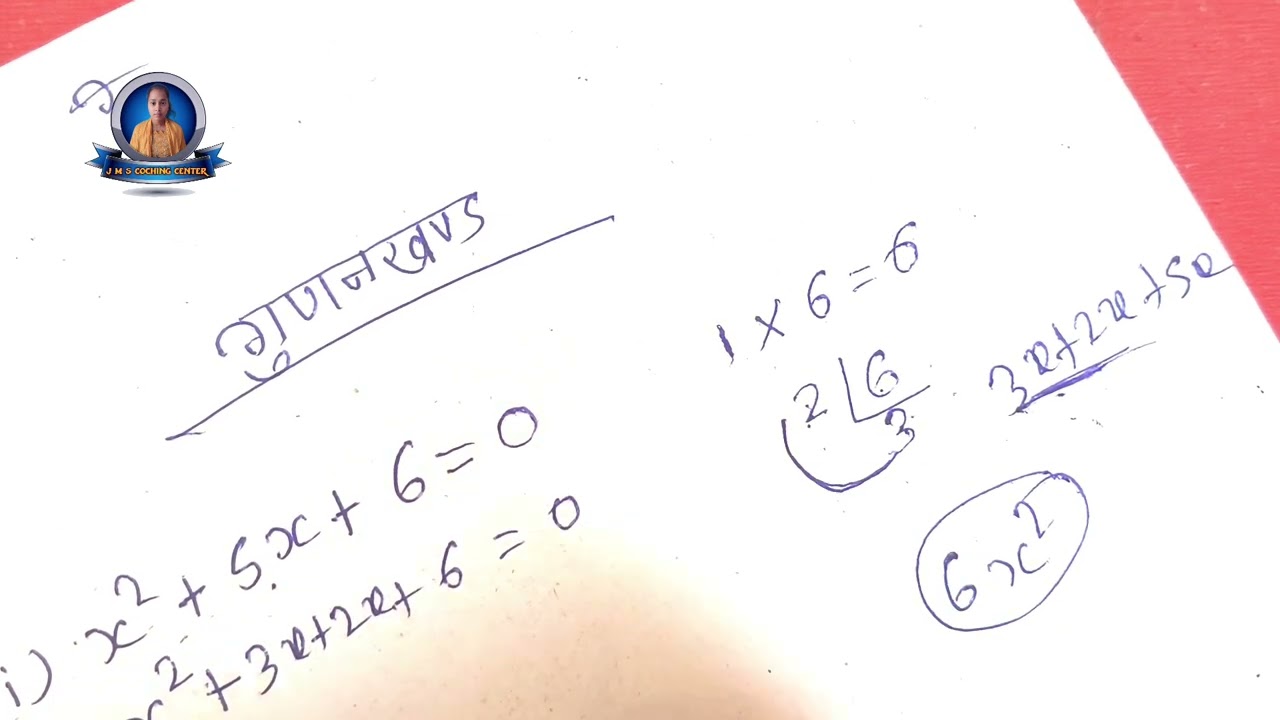 J M S COCHING CENTER
गुणनखण्ड
i) x² + 5x + 6 = 0
x² + 3x + 2x + 6 = 0
1 × 6 = 6
2 | 6
3
3x + 2x + 5x
6x²